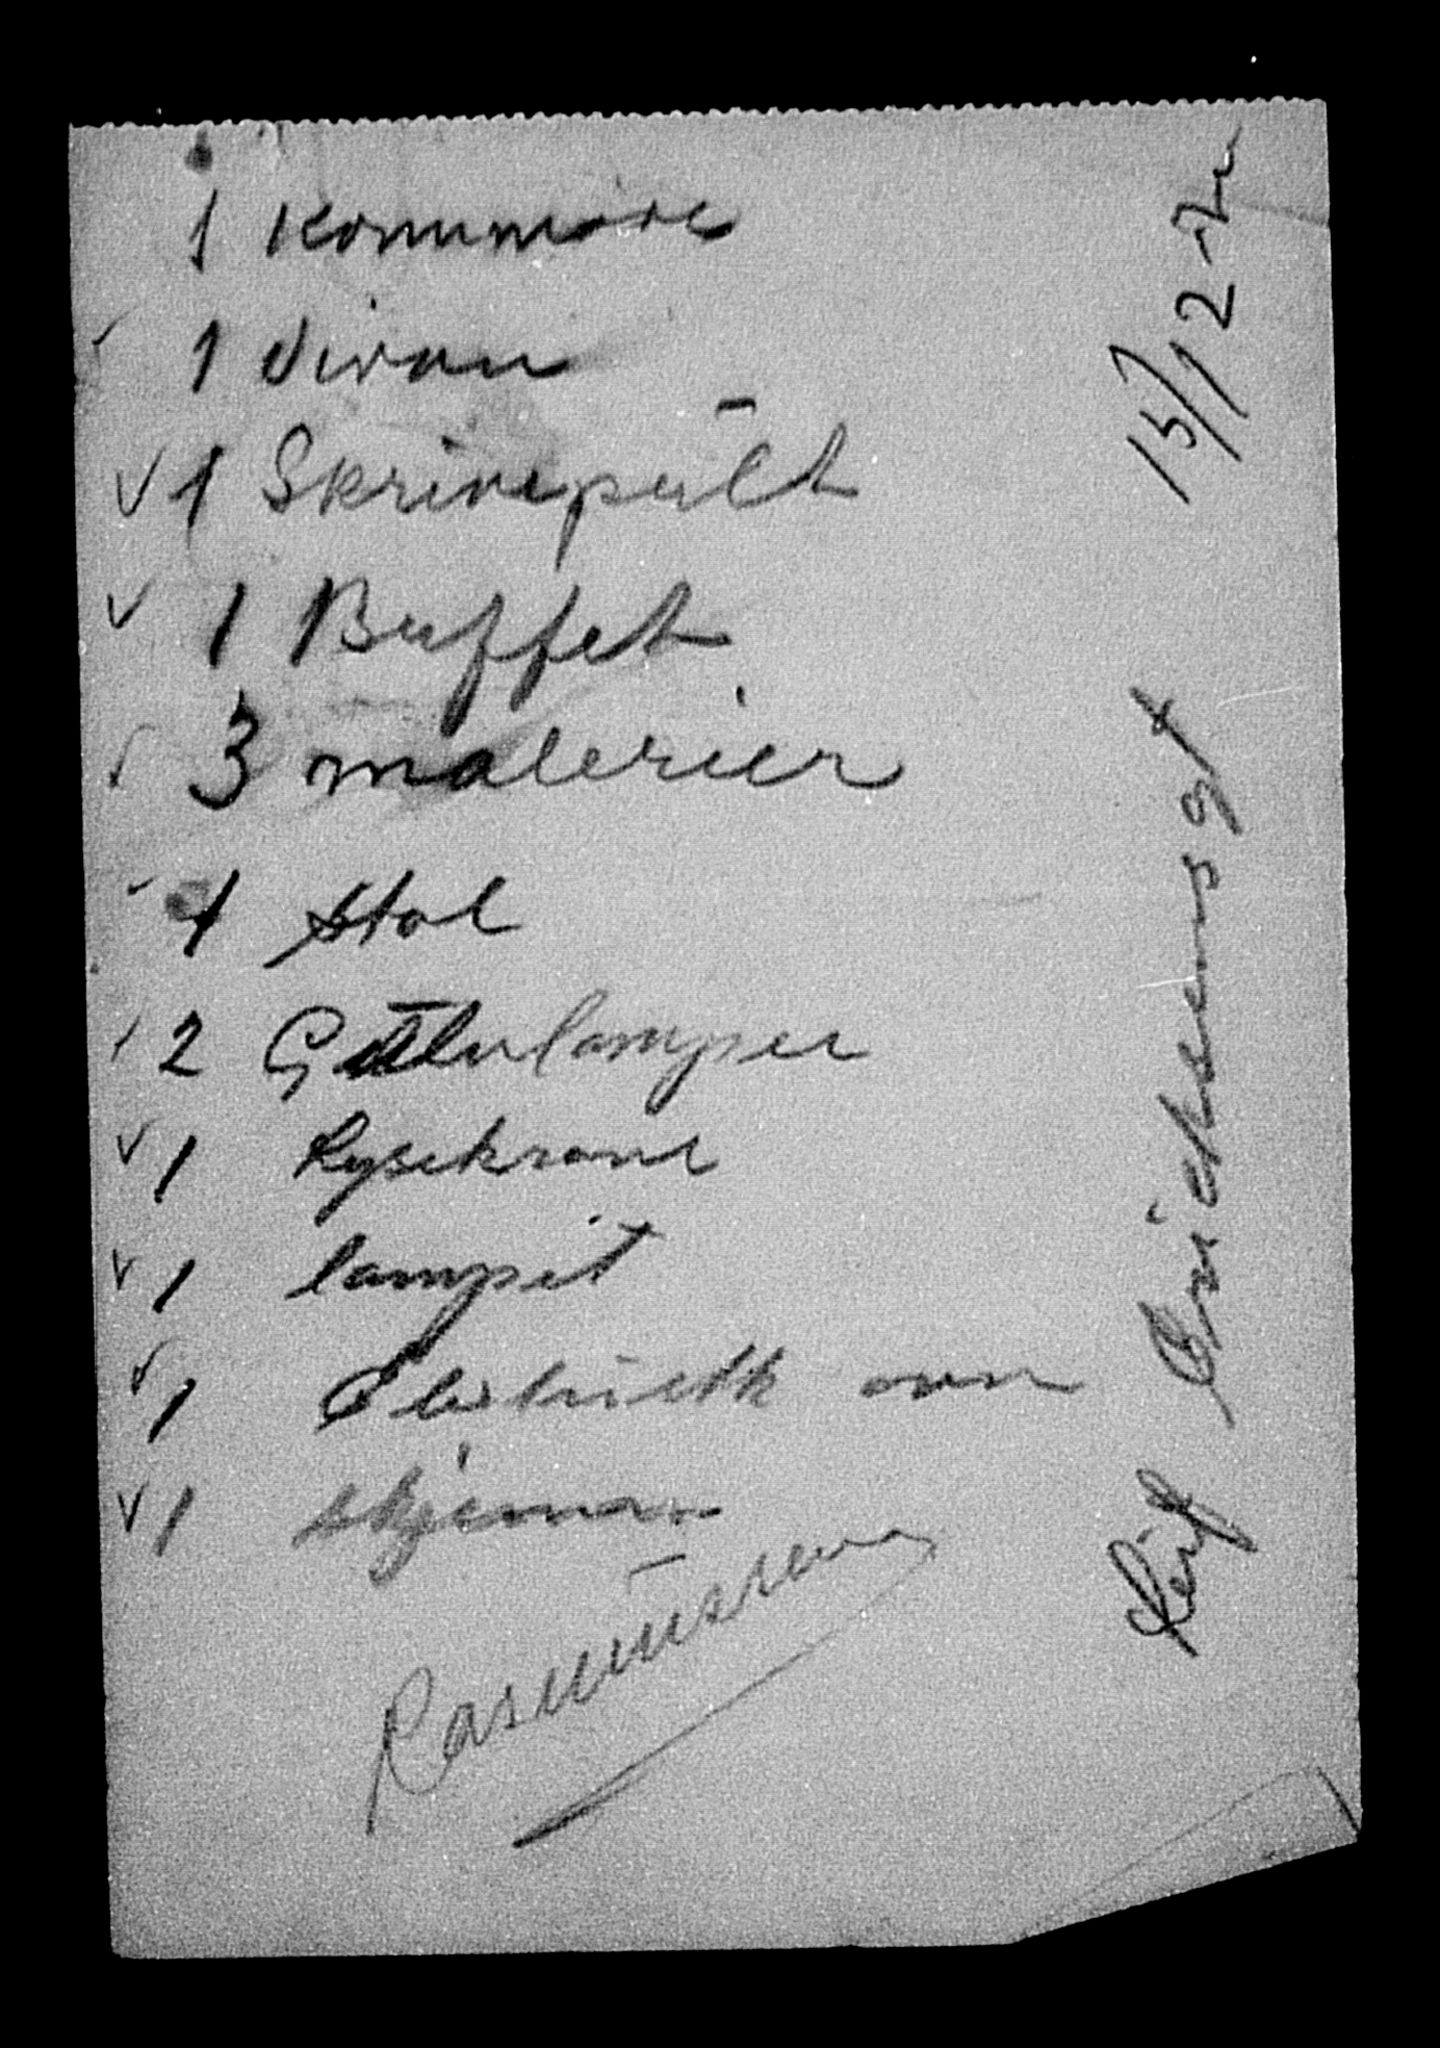 1 Kommode
1 divan
✓ 1 Skrivepult
✓ 1 Buffet
✓ 3 malerier
1 stol
2 Gulvlamper
✓ 1 Lysekrone
✓ 1 lampet
✓ 1 Elektrisk ovn
✓ 1 skjerm
Rasmussen
Leif Erichsensgt
15/12